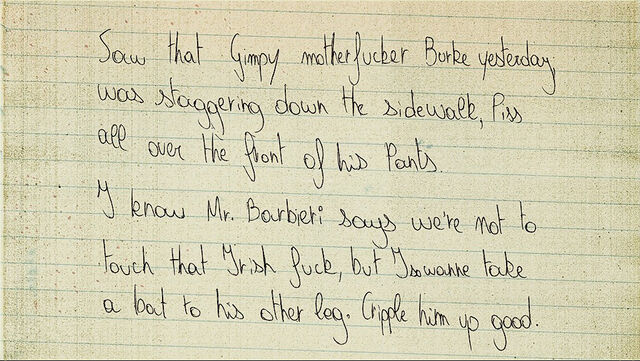 Saw that Gimpy motherfucker Burke yesterday,
was staggering down the sidewalk, Piss
all over the front of his Pants.
I know Mr. Barbieri says we're not to
touch that Irish fuck, but I sowanne take
a bat to his other leg. Cripple him up good.